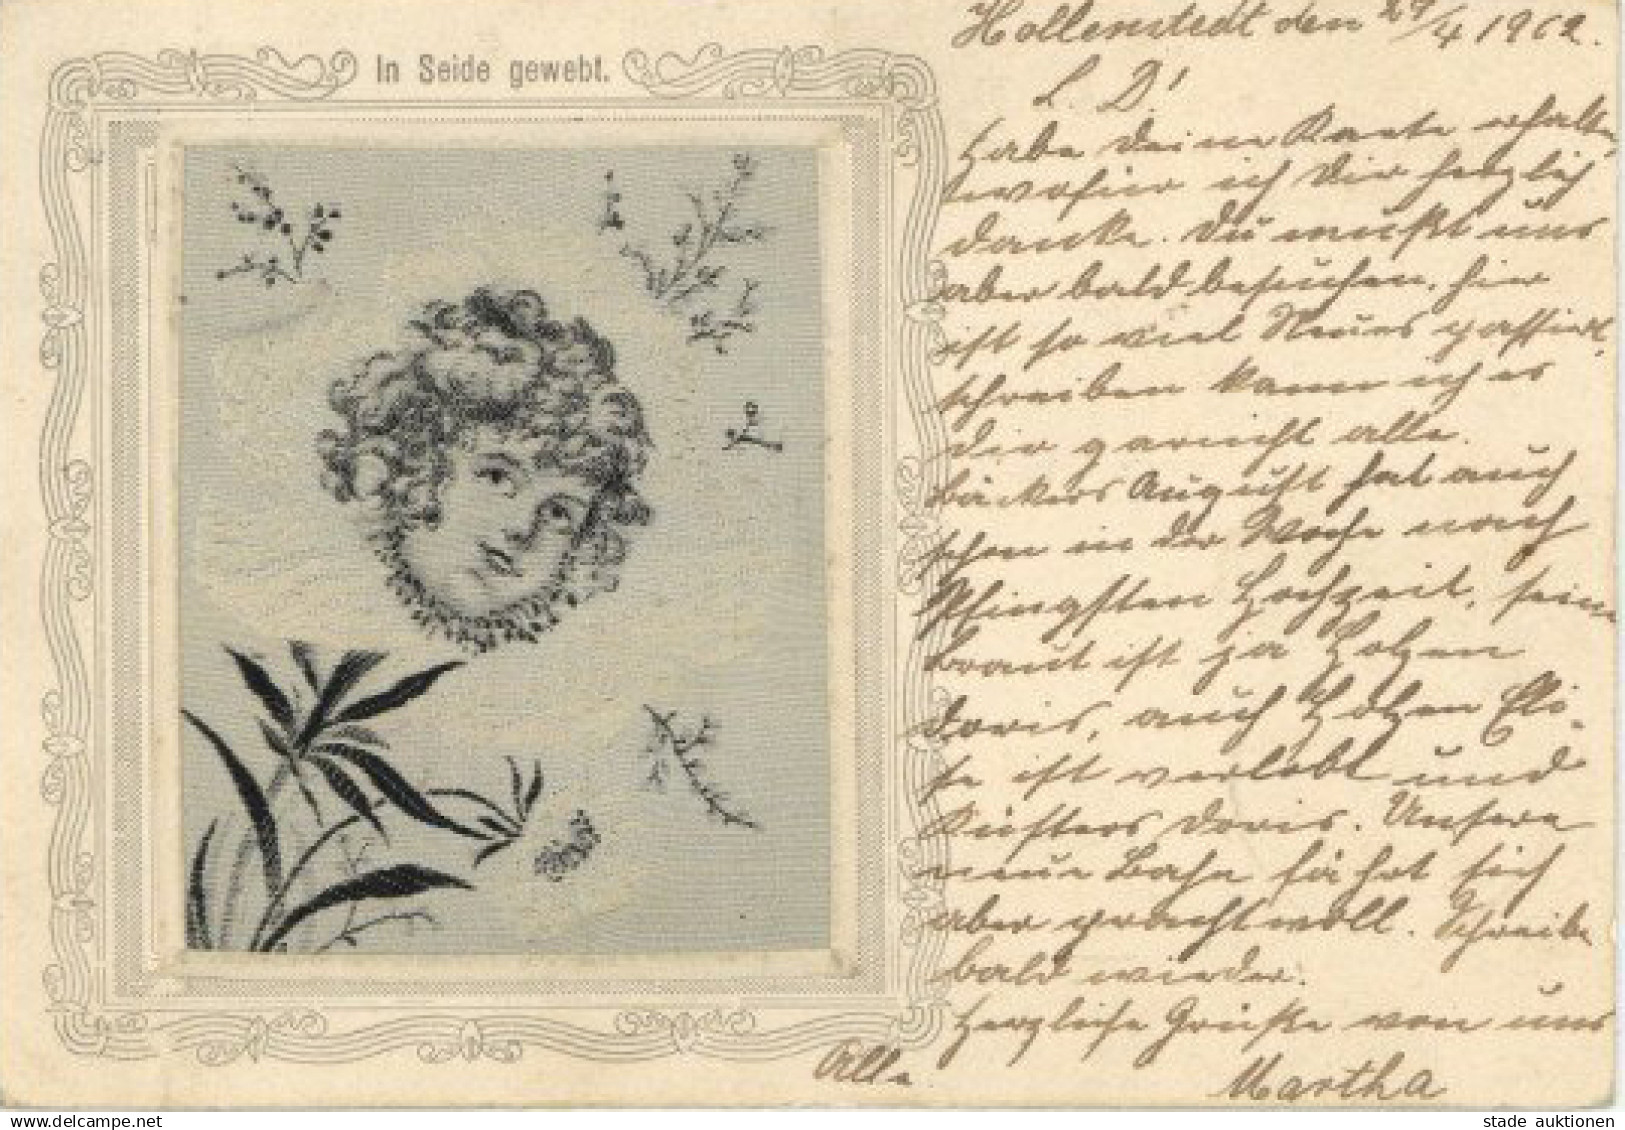 In Seide gewebt.
Hollenstedt den 29/4 1902.
L. D!
Habe Deine Karte erhalten,
wofür ich Dir herzlich
danke. Du mußt uns
aber bald besuchen, hier
ist so viel Neues passiert,
schreiben kann ich es
Dir garnicht alle.
Bäckers August hat auch
schon in der Woche nach
Pfingsten Hochzeit, seine
Braut ist ja Holzen
Doris, auch Holzen Eli-
se ist verlobt und
Küsters Doris. Unsere
neue Bahn fährt sich
aber prachtvoll. Schreibe
bald wieder.
Herzliche Grüße von uns
Alle. Martha
stade auktionen